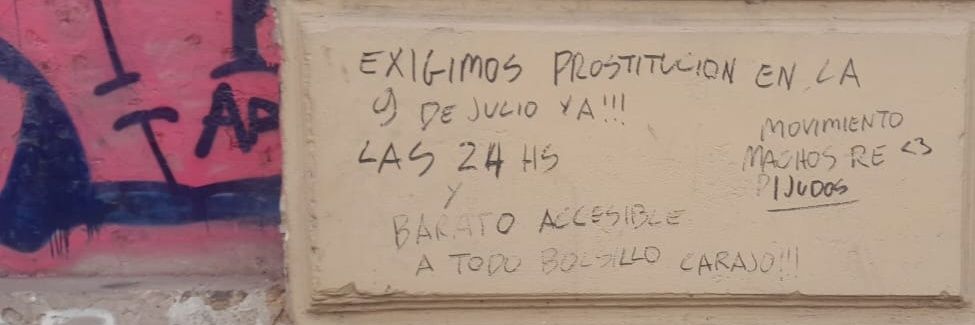 EXIGIMOS PROSTITUCION EN LA
9 DE JULIO YA!!!
LAS 24 HS
Y
BARATO ACCESIBLE
A TODO BOLSILLO CARAJO!!!
MOVIMIENTO
MACHOS RE <3
PIJUDOS